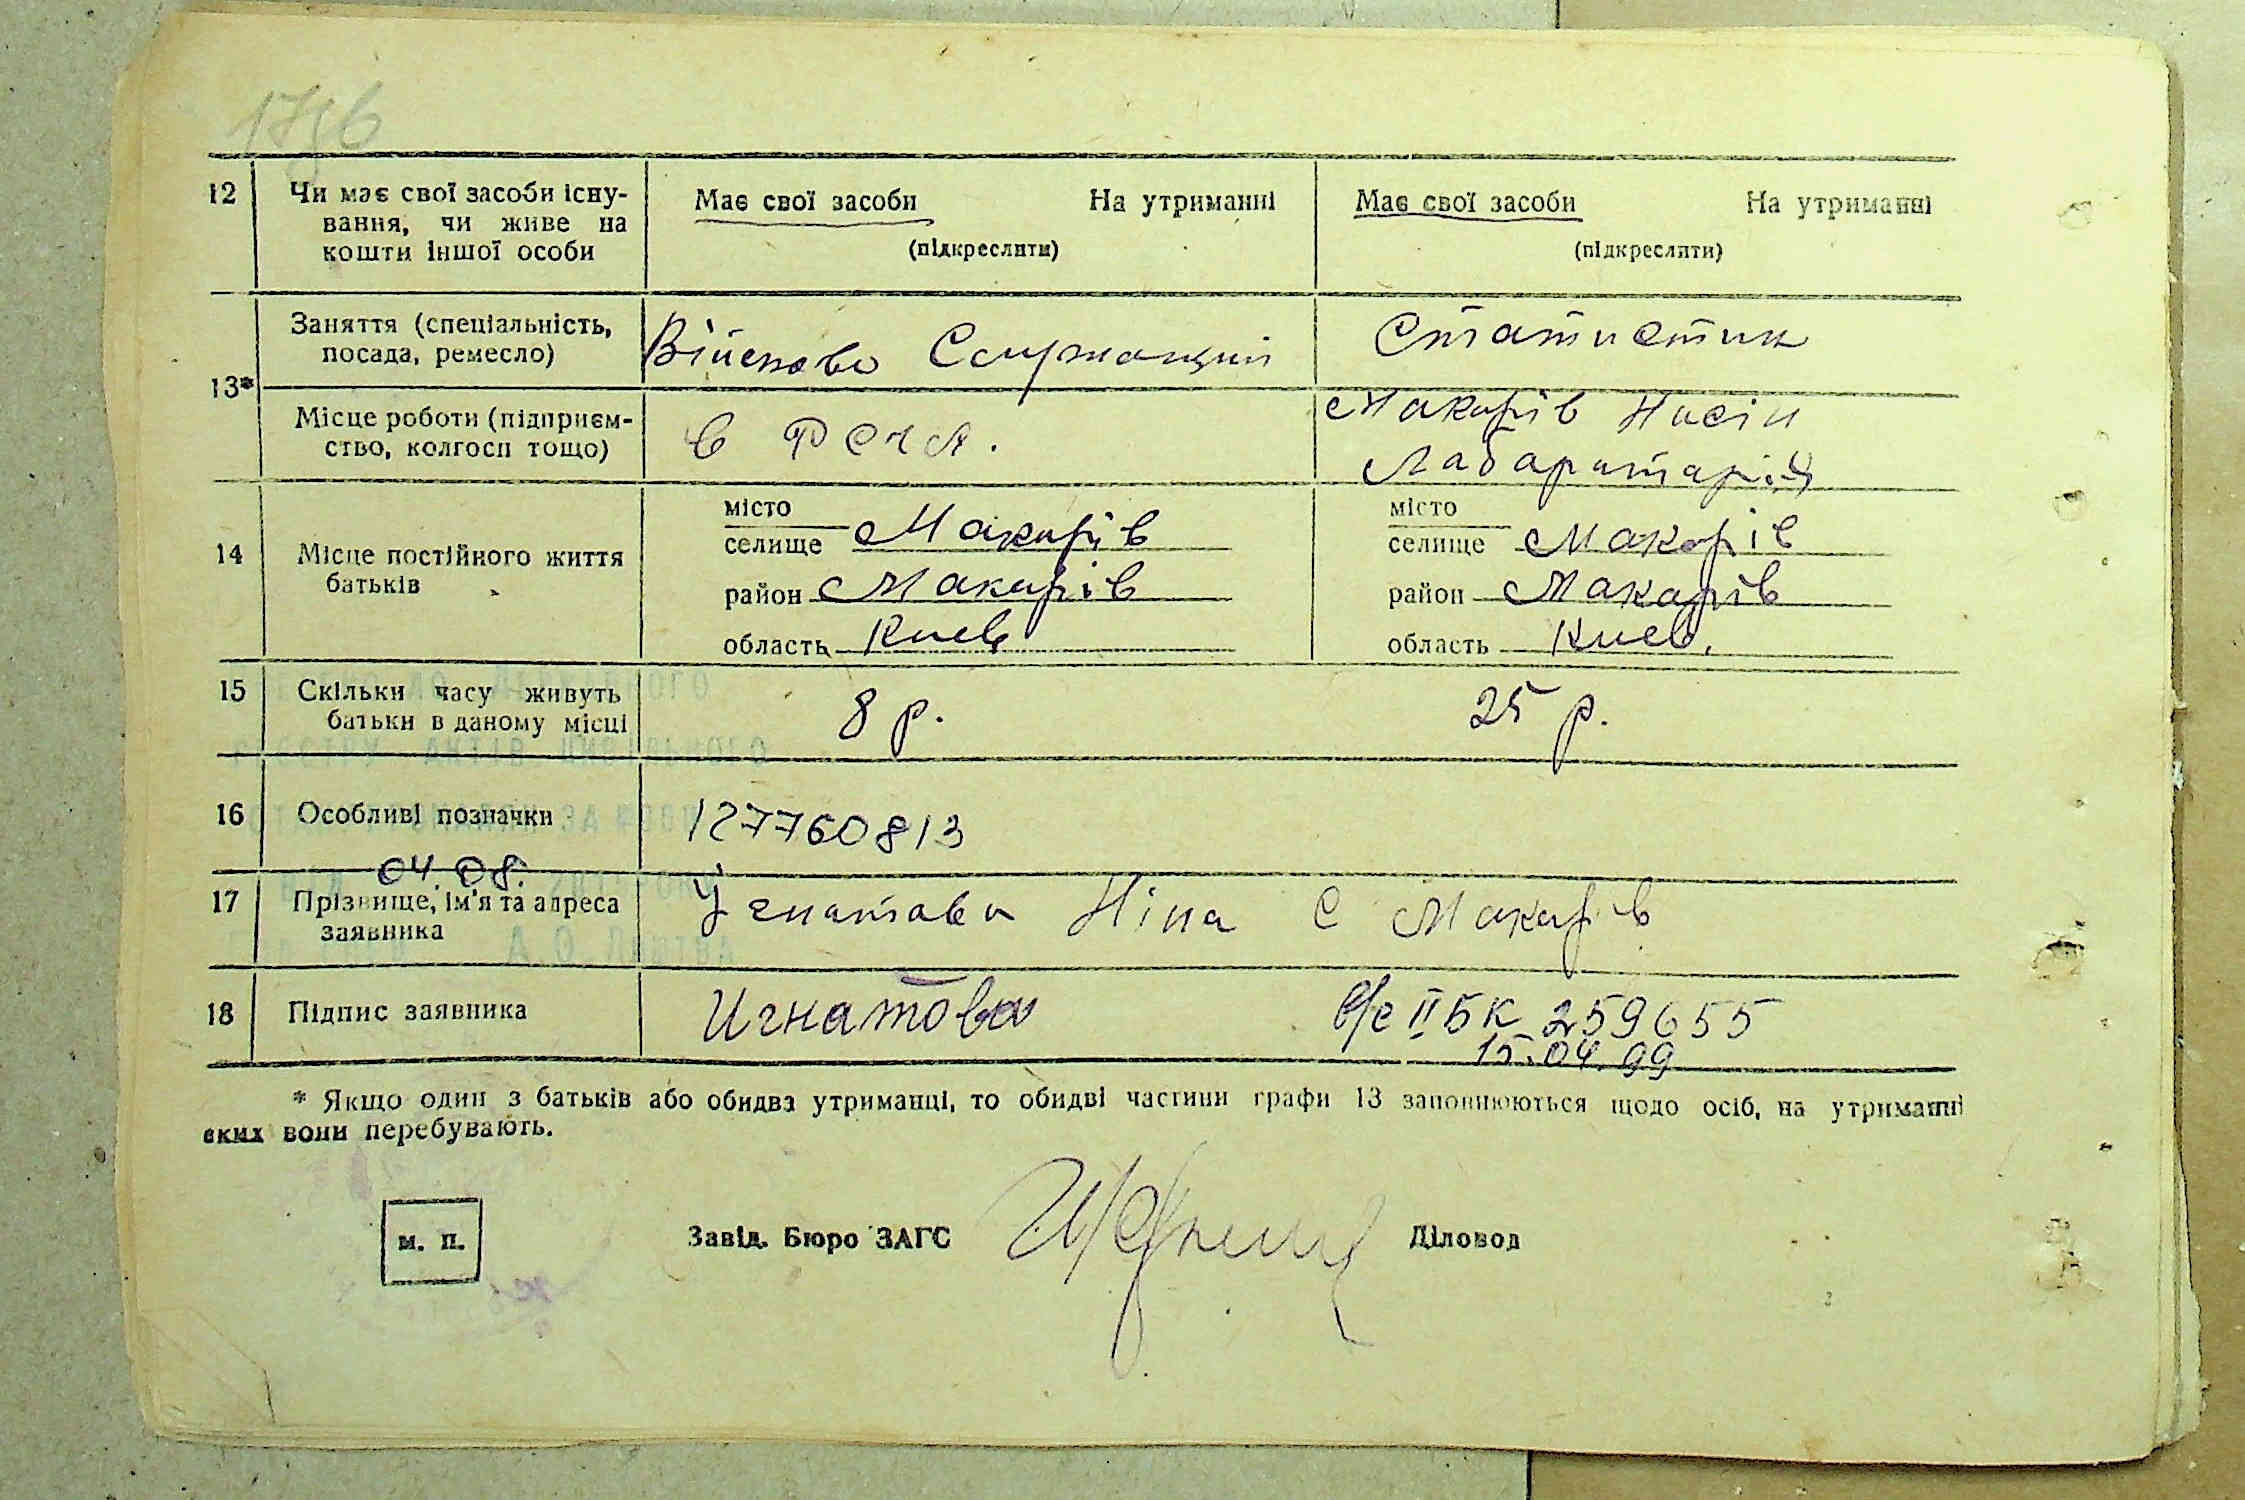 12 Чи має свої засоби існу- Має свої засоби На утриманні Має свої засоби На утриманні
вання, чи живе на
кошти іншої особи (підкреслити) (підкреслити)
Заняття (спеціальність, Військово Служащий Статистик
посада, ремесло)
13*
Місце роботи (підприєм- в РСЧА. Макарів Насін
ство, колгосп тощо) Лабараторія
місто місто
селище Макарів селище Макарів
14 Місце постійного життя
батьків район Макарів район Макарів
область Киев область Киев.
15 Скільки часу живуть 8 р. 25 р.
батьки в даному місці
16 Особливі позначки 127760813
04.08.
17 Прізвище, ім'я та адреса Ігнатова Ніна с Макарів
заявника
18 Підпис заявника Игнатова в/с II БК 259655
15.04.99
* Якщо один з батьків або обидва утриманці, то обидві частини графи 13 заповнюються щодо осіб, на утриманні
яких вони перебувають.
м. п. Завід. Бюро ЗАГС Діловод